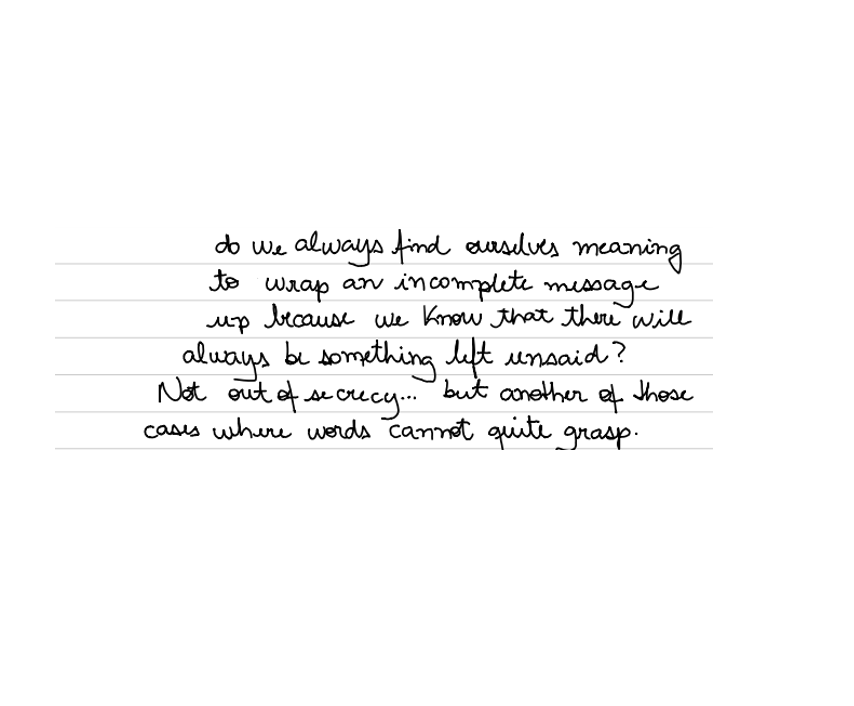 do we always find ourselves meaning
to wrap an incomplete message
up because we know that there will
always be something left unsaid?
Not out of secrecy... but another of those
cases where words cannot quite grasp.